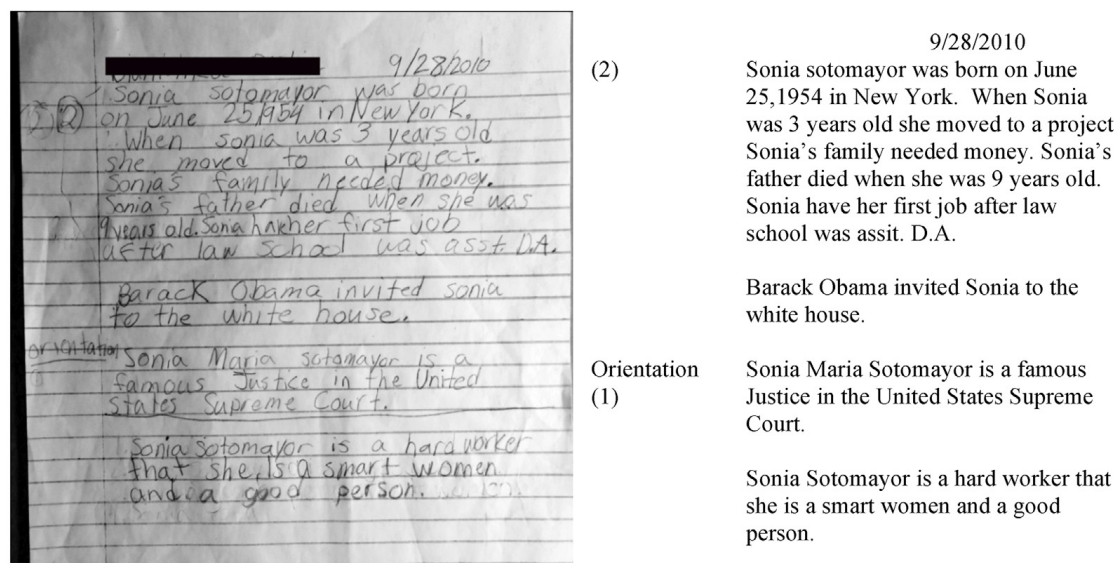 9/28/2010
Sonia sotomayor was born
(2)
on June 25,1954 in New York.
When sonia was 3 years old
she moved to a project.
Sonia's family needed money.
Sonia's father died when she was
9 years old. Sonia her first job
after law school was asst. D.A.
Barack Obama invited sonia
to the white house.
orientation
Sonia Maria sotomayor is a
famous Justice in the United
States Supreme Court.
Sonia Sotomayor is a hard worker
that she is a smart women
and a good person.
9/28/2010
(2)
Sonia sotomayor was born on June
25,1954 in New York. When Sonia
was 3 years old she moved to a project
Sonia's family needed money. Sonia's
father died when she was 9 years old.
Sonia have her first job after law
school was assit. D.A.
Barack Obama invited Sonia to the
white house.
Orientation
(1)
Sonia Maria Sotomayor is a famous
Justice in the United States Supreme
Court.
Sonia Sotomayor is a hard worker that
she is a smart women and a good
person.